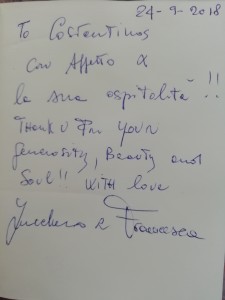 24-9-2018
To Costantinos
con Affetto x
la sua ospitalità !!
Thank U For Your
Generosity, Beauty and
Soul!! WITH love
Zucchero & Francesca